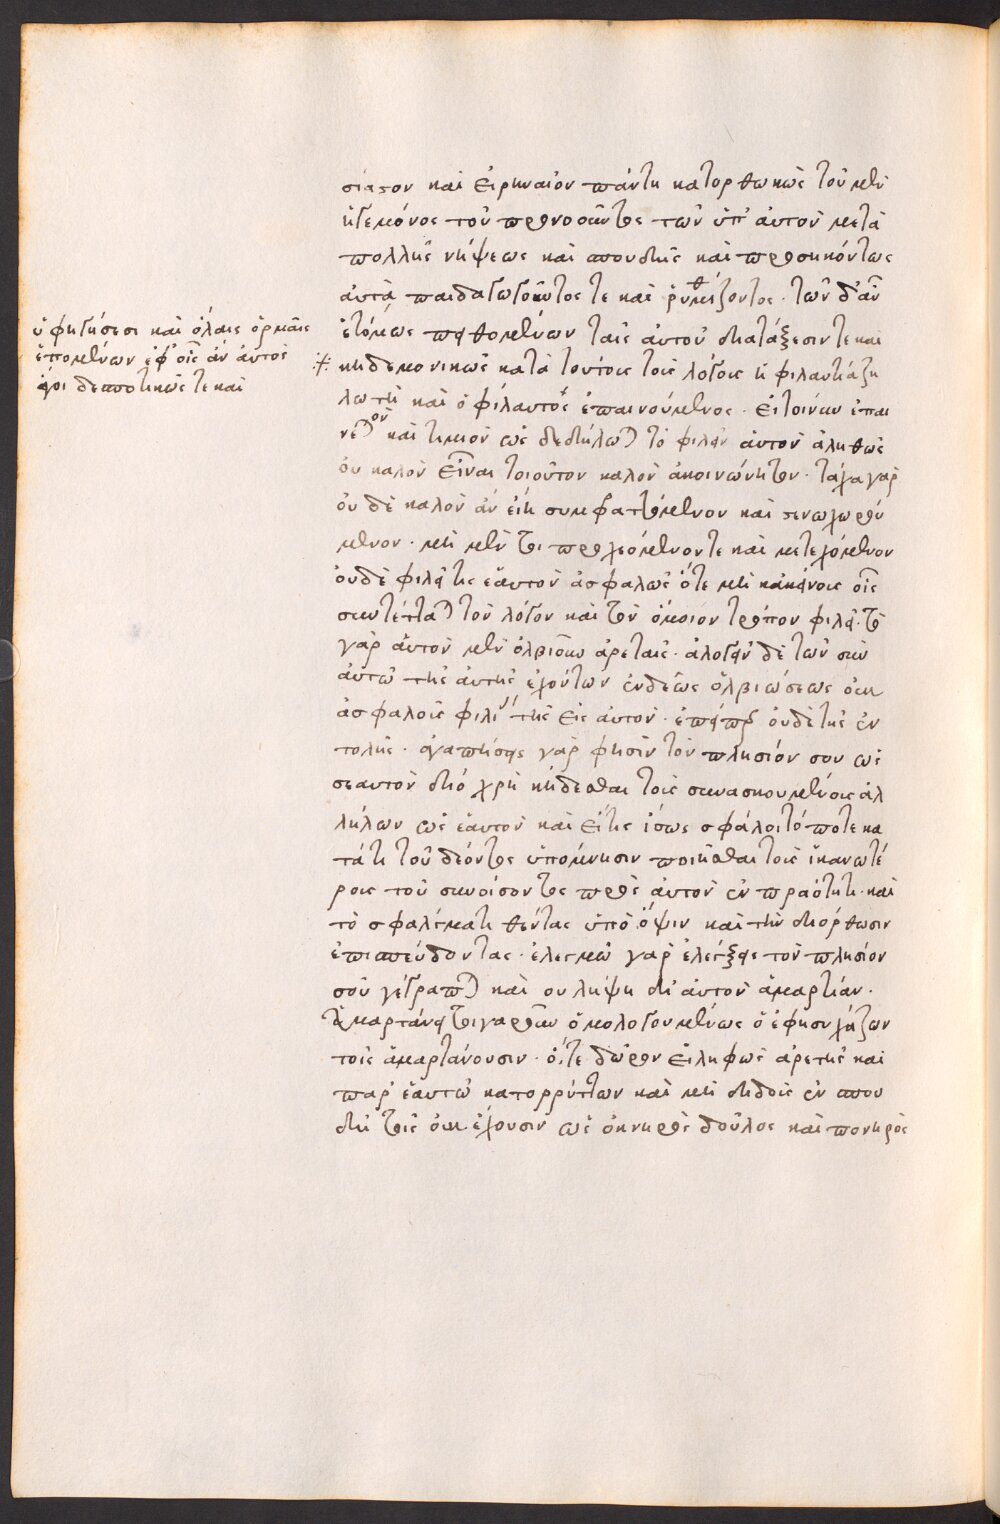 ὑφηγήσεσι καὶ ὅλαις ὁρμαῖς
ἑπομένων ἐφ' οἷς ἂν αὐτοὺς
ἄγοι δεσποτικῶς τε καὶ
σίαστον καὶ εἰρηναῖον πάντη κατορθωκὼς τοῦ μὲν
ἡγεμόνος τοῦ προνοοῦντος τῶν ὑπ' αὐτοῦ μετὰ
πολλῆς νήψεως καὶ σπουδῆς καὶ προσηκόντως
αὐτὰ παιδαγωγοῦντος τε καὶ ῥυθμίζοντος· τῶν δ' αὖ
ἑτοίμως πειθομένων ταῖς αὐτοῦ διατάξεσιν τε καὶ
κηδεμονικῶς κατὰ τούτους τοὺς λόγους ἡ φιλαυτία ζη
λωτὴ καὶ ὁ φίλαυτος ἐπαινούμενος· εἰ τοίνυν ἐπαι
νετὸν καὶ τίμιον ὡς δεδήλωται τὸ φιλεῖν αὑτὸν ἀληθῶς
οὐ καλὸν εἶναι τοιοῦτον καλὸν ἀκοινώνητον· τάχα γὰρ
οὐδὲ καλὸν ἂν εἴη συμφατούμενον καὶ στενοχωρού
μενον· μὴ μέν τι προχεόμενον τε καὶ μετεχόμενον
οὐδὲ φιλεῖ τις ἑαυτὸν ἀσφαλῶς ὅτε μὴ κἀκείνους οἷς
συντέτακται τὸν λόγον καὶ τὸν ὅμοιον τρόπον φιλεῖ· τὸ
γὰρ αὑτὸν μὲν ὀλβιοῦν ἀρεταῖς· ἀλογεῖν δὲ τῶν σὺν
αὐτῷ τῆς αὐτῆς ἐχόντων ἐνδεῶς ὀλβιώσεως οὐκ
ἀσφαλοῦς φιλίας τῆς εἰς αὑτὸν· ἐπείπερ οὐδὲ τῆς ἐν
τολῆς· ἀγαπήσεις γὰρ φησὶν τὸν πλησίον σου ὡς
σεαυτὸν διὸ χρὴ κήδεσθαι τοὺς συνασκουμένους ἀλ
λήλων ὡς ἑαυτοῦ καὶ εἴ τις ἴσως σφάλοιτό ποτε κα
τά τι τοῦ δέοντος ὑπόμνησιν ποιεῖσθαι τοὺς ἱκανωτέ
ρους τοῦ συνοίσοντος πρὸς αὐτὸν ἐν πραότητι· καὶ
τὸ σφαλὲν κατιθέντας ὑπὸ ὄψιν καὶ τὴν διόρθωσιν
ἐπισπεύδοντας· ἐλεγμῷ γὰρ ἐλέγξεις τὸν πλησίον
σου γέγραπται καὶ οὐ λήψῃ δι' αὐτὸν ἁμαρτίαν·
Ἁμαρτάνει τοιγαροῦν ὁμολογουμένως ὁ ἐφησυχάζων
τοῖς ἁμαρτάνουσιν· ὅ, τε δῶρον εἰληφὼς ἀρετῆς καὶ
παρ' ἑαυτῷ κατορρύττων καὶ μὴ διδοὺς ἐν σπου
δῇ τοῖς οὐκ ἔχουσιν ὡς ὀκνηρὸς δοῦλος καὶ πονηρὸς